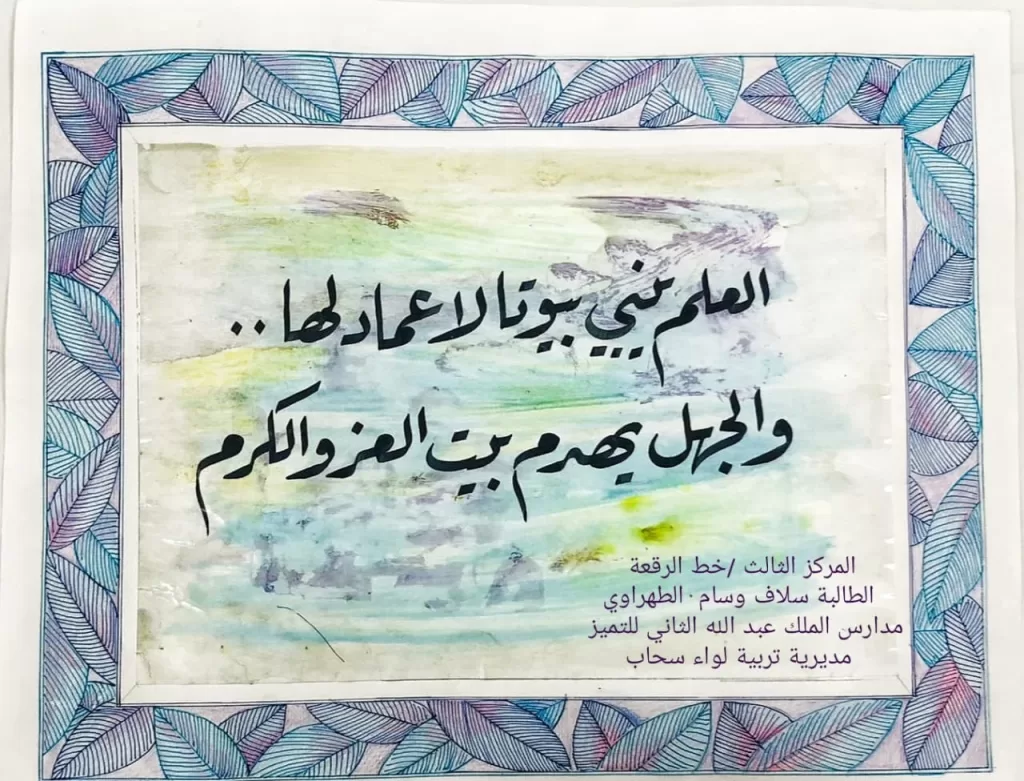 العلم يبني بيوتا لا عماد لها..
والجهل يهدم بيت العز والكرم
المركز الثالث /خط الرقعة
الطالبة سلاف وسام الطهراوي
مدارس الملك عبد الله الثاني للتميز
مديرية تربية لواء سحاب